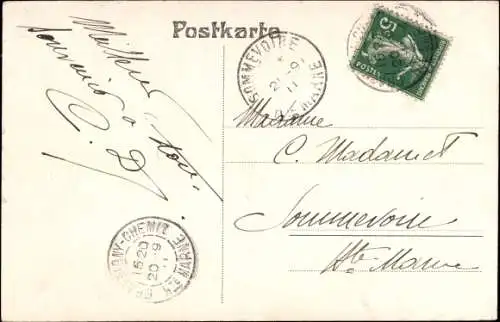 Postkarte
Meilleurs
souvenirs à tous
C. D.
SOMMEVOIRE
21-9
11
HTE MARNE
5
POSTES
Madame
C. Madamet
Sommevoire
Hte Marne
CHEMIN
15 20
20-9
HTE MARNE